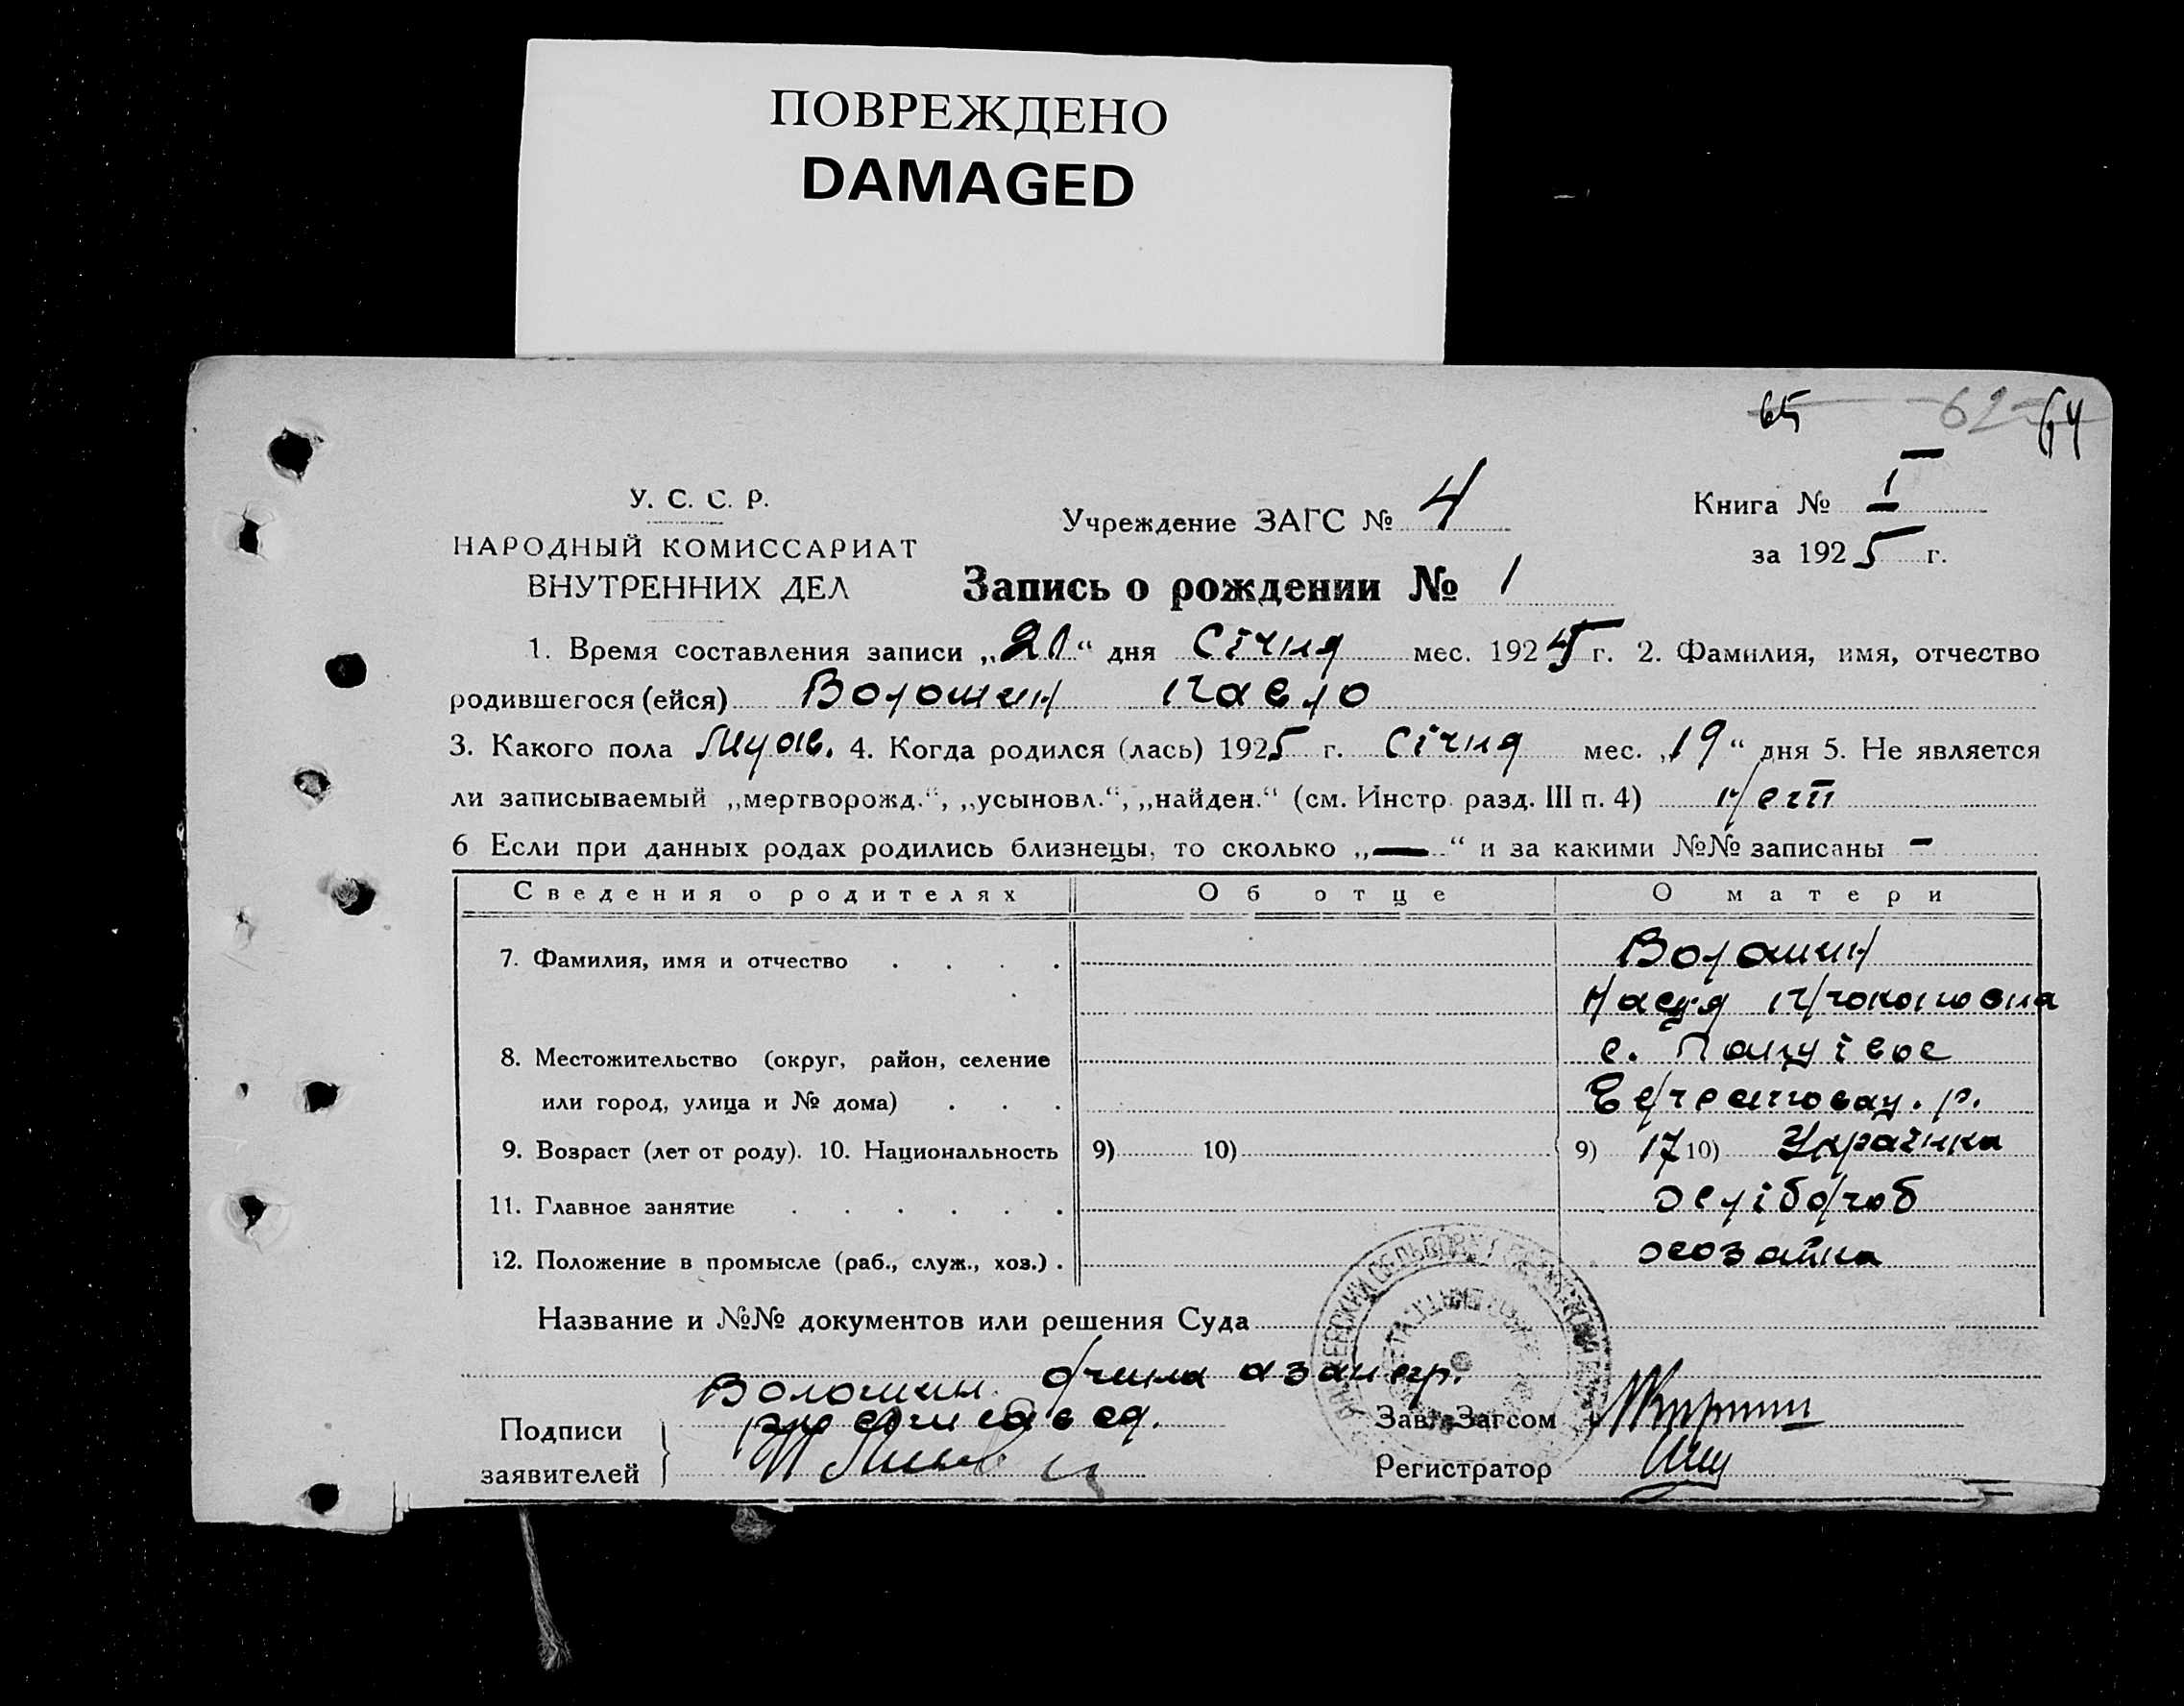 ПОВРЕЖДЕНО
DAMAGED
65 62 64
У. С. С. Р.
НАРОДНЫЙ КОМИССАРИАТ
ВНУТРЕННИХ ДЕЛ
Учреждение ЗАГС № 4
Книга № I
за 1925 г.
Запись о рождении № 1
1. Время составления записи „20“ дня Січня мес. 1925 г. 2. Фамилия, имя, отчество
родившегося (ейся) Волошин Павло
3. Какого пола Муж. 4. Когда родился (лась) 1925 г. Січня мес. „19“ дня 5. Не является
ли записываемый „мертворожд.“, „усыновл.“, „найден.“ (см. Инстр. разд. III п. 4) нет
6 Если при данных родах родились близнецы, то сколько „—“ и за какими №№ записаны -
Сведения о родителях Об отце О матери
7. Фамилия, имя и отчество . . . . Волошин
Прокоповна
8. Местожительство (округ, район, селение с.
или город, улица и № дома) . . . р.
9. Возраст (лет от роду). 10. Национальность 9) 10) 9) 17 10) Украінка
11. Главное занятие . . . . . . хлібороб
12. Положение в промысле (раб., служ., хоз.) . хозяйка
Название и №№ документов или решения Суда
Волошин
Подписи
заявителей
Зав. Загсом
Регистратор